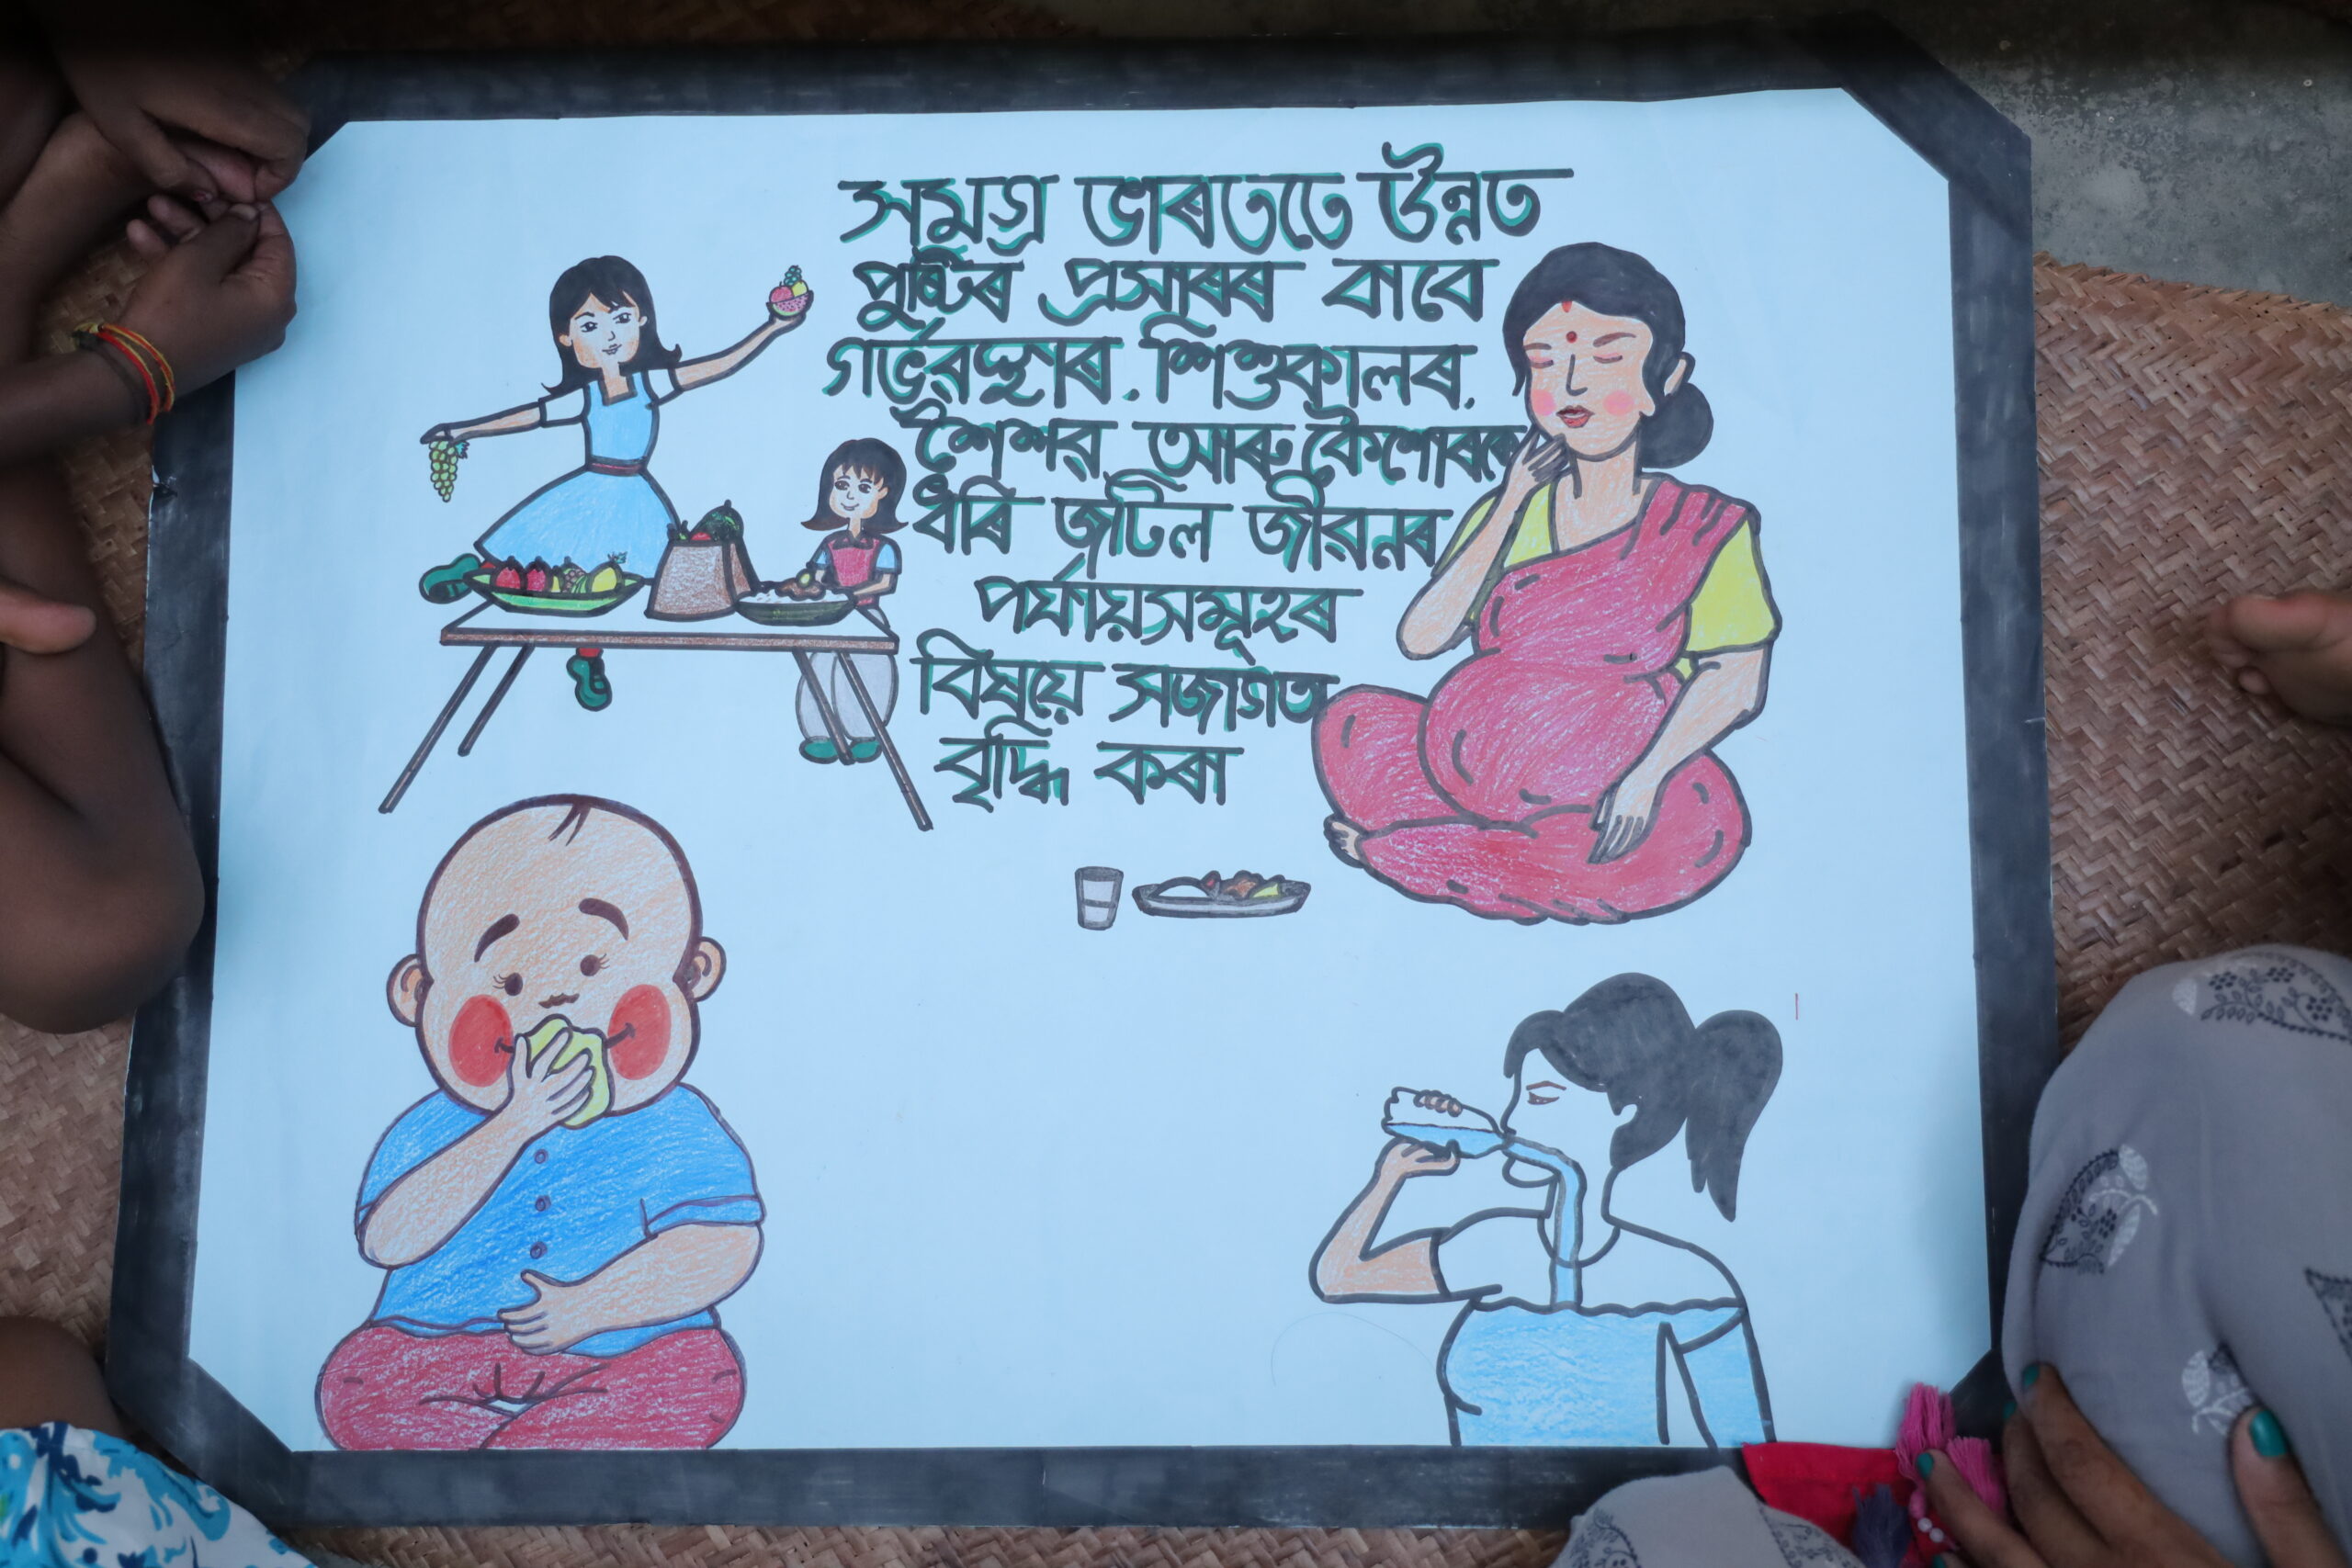 সমগ্ৰ ভাৰততে উন্নত
পুষ্টিৰ প্ৰসাৰৰ বাবে
গৰ্ভৱস্থাৰ, শিশুকালৰ,
শৈশৱ, আৰু কৈশোৰকে
ধৰি জটিল জীৱন্নৰ
পৰ্যায়সমূহৰ
বিষয়ে সজাগতা
বৃদ্ধি কৰা